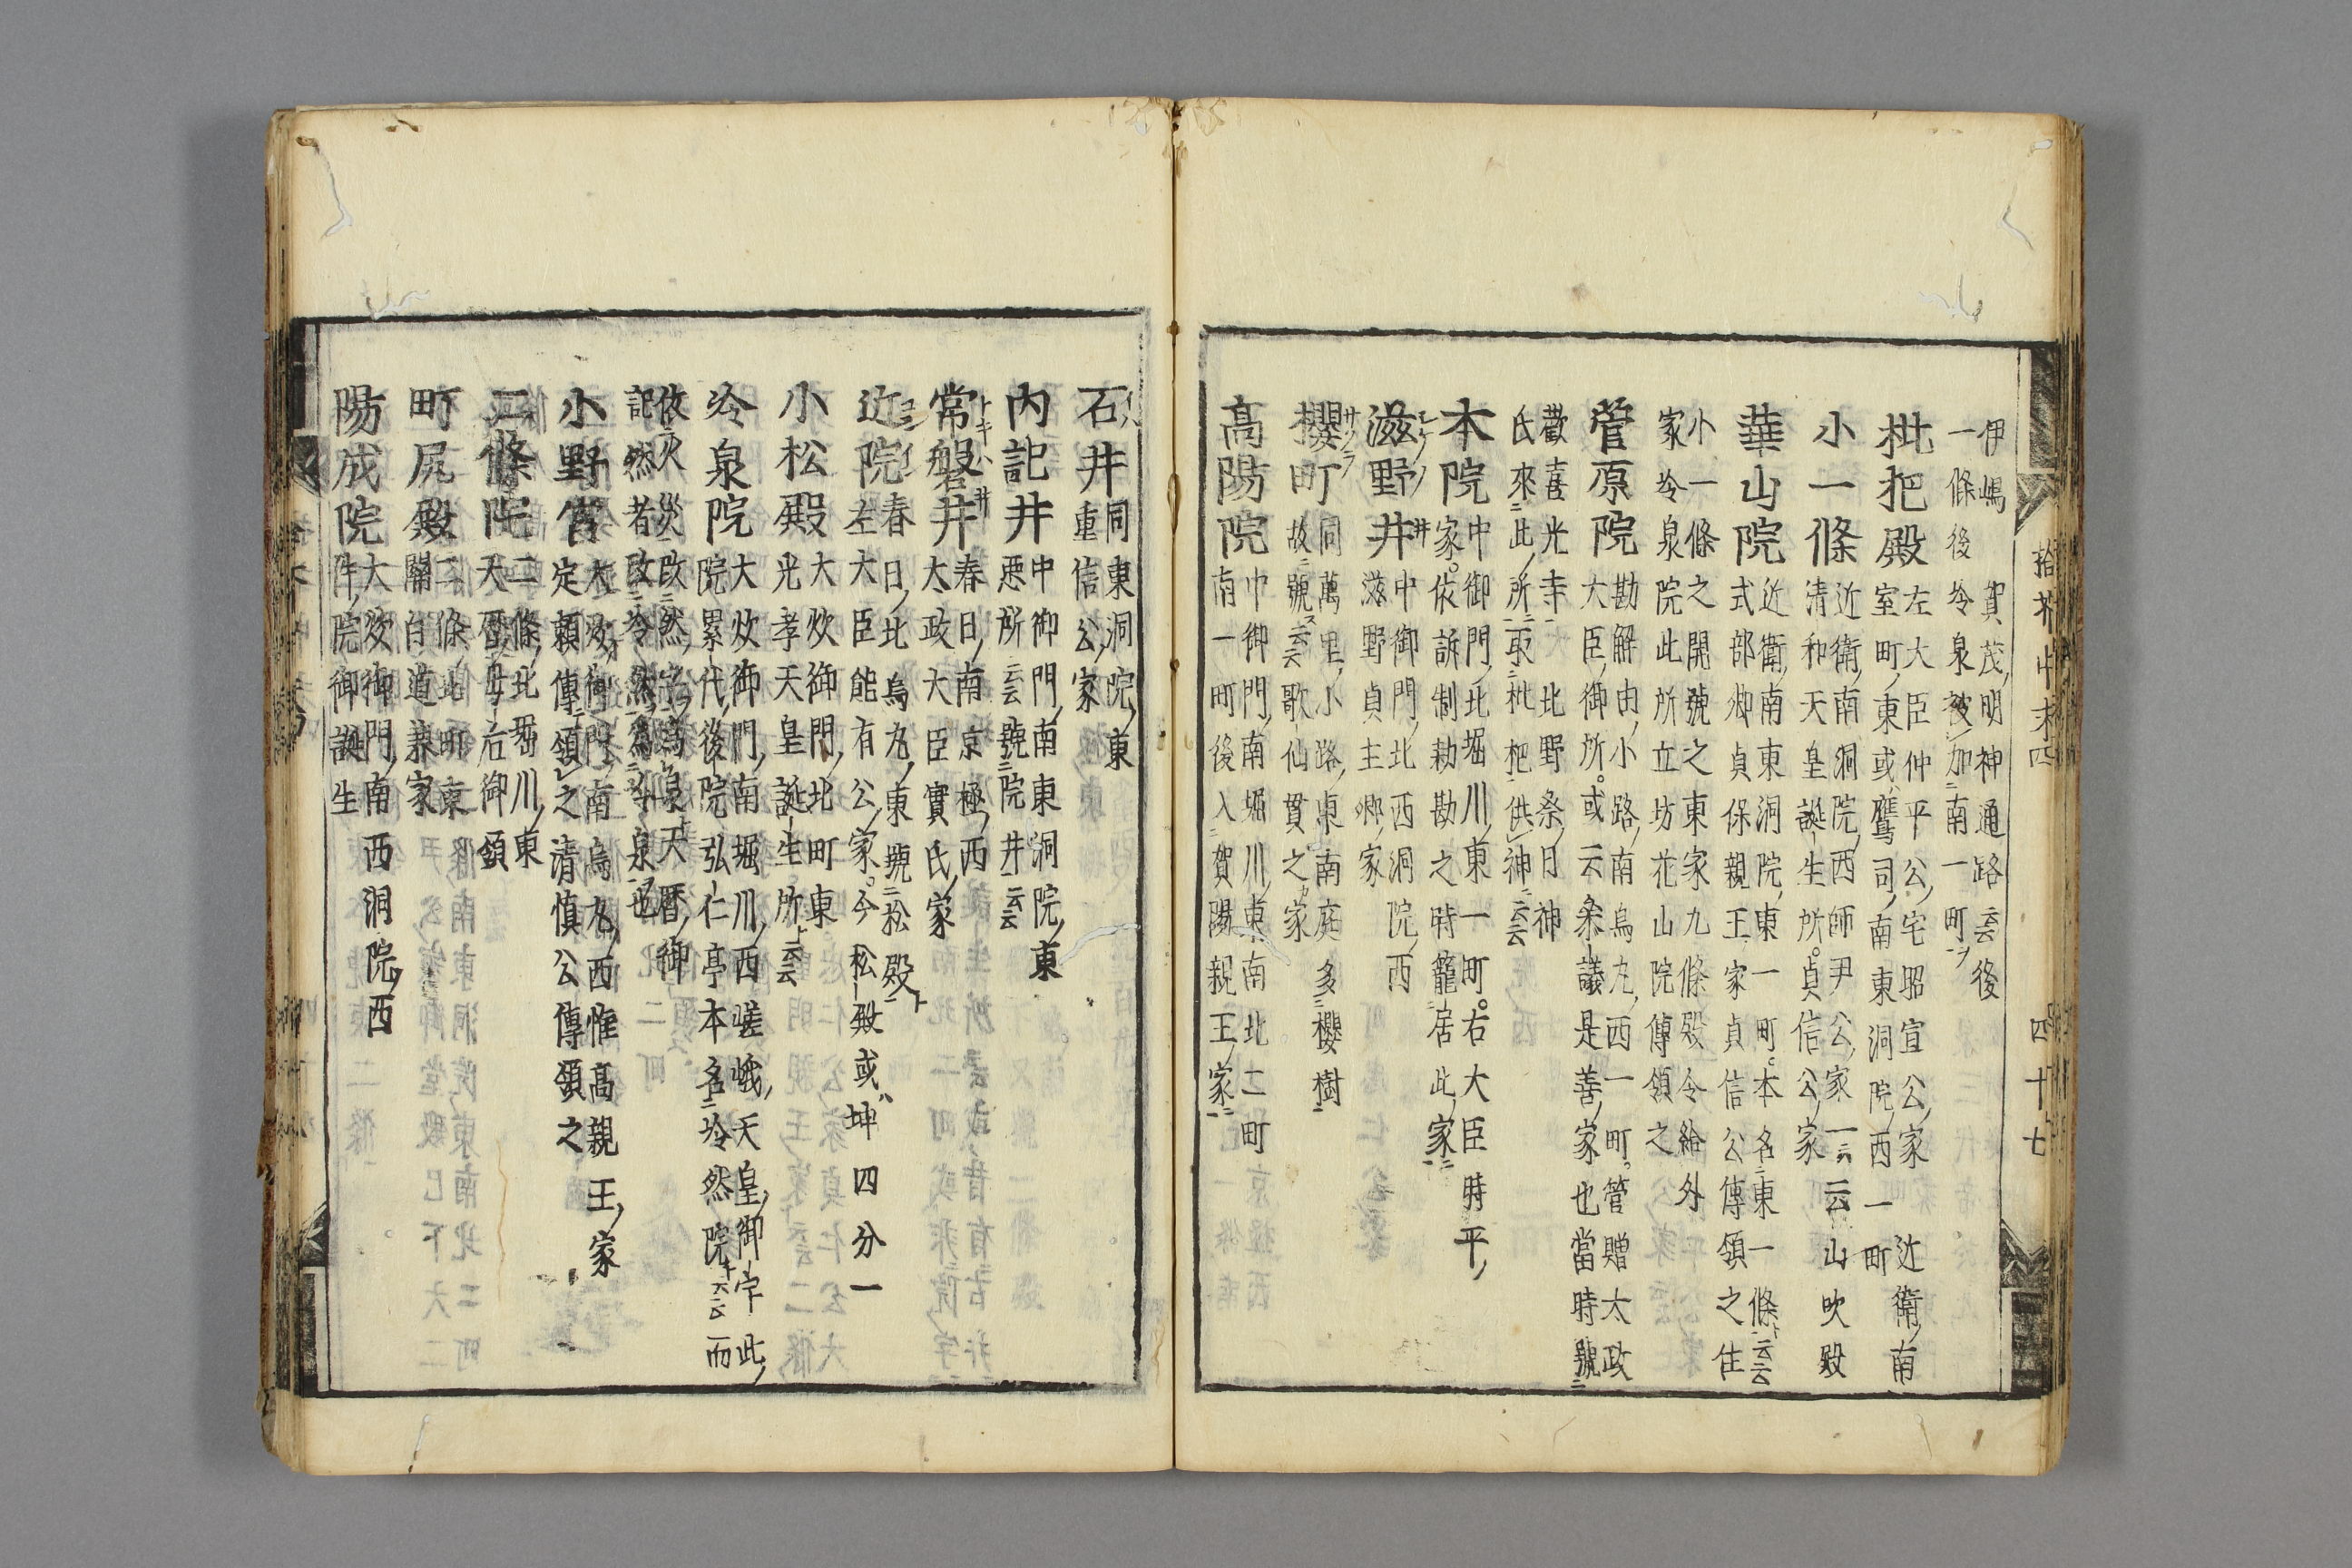 伊嶋　賀茂明神通路云云後
一條後冷泉被加南一町
枇杷殿
左大臣仲平公宅昭宣公家近衛南
室町東或鷹司南東洞院西一町
小一條
近衛南洞院西師尹公家一云山吹殿
清和天皇誕生所貞信公家
華山院
近衛南東洞院東一町本名東一條云云
式部卿貞保親王家貞信公傳領之住
小一條之開號之東家九條殿令給外
家冷泉院此所立坊花山院傳領之
菅原院
勘解由小路南烏丸西一町菅贈太政
大臣御所或云參議是善家也當時號
歡喜光寺北野祭日神
氏來此所取枇杷供神云云
本院
中御門北堀川東一町右大臣時平
家依訴制勅勘之時籠居此家
滋野井
中御門北西洞院西
滋野貞主卿家
櫻町
同萬里小路東南庭多櫻樹
故號云云歌仙貫之家
高陽院
中御門南堀川東南北二町
南一町後入賀陽親王家
拾芥中末四　四十七
石井
同東洞院東
重信公家
內記井
中御門南東洞院東
悪所云云號院井云云
常盤井
春日南京極西
太政大臣實氏家
近院
春日北烏丸東號松殿
左大臣能有公家今松殿或坤四分一
小松殿
大炊御門北町東
光孝天皇誕生所云云
冷泉院
大炊御門南堀川西嵯峨天皇御宇此
院累代後院弘仁亭本名冷然院云云而
依火災改然字為泉天曆御
記然者改冷然為冷泉也
小野宮
大炊御門南烏丸西惟高親王家
定頼傳領之清慎公傳領之
二條院
二條北堀川東
天曆母后御領
町尻殿
二條北町東
關白道兼家
陽成院
大炊御門南西洞院西
件院御誕生